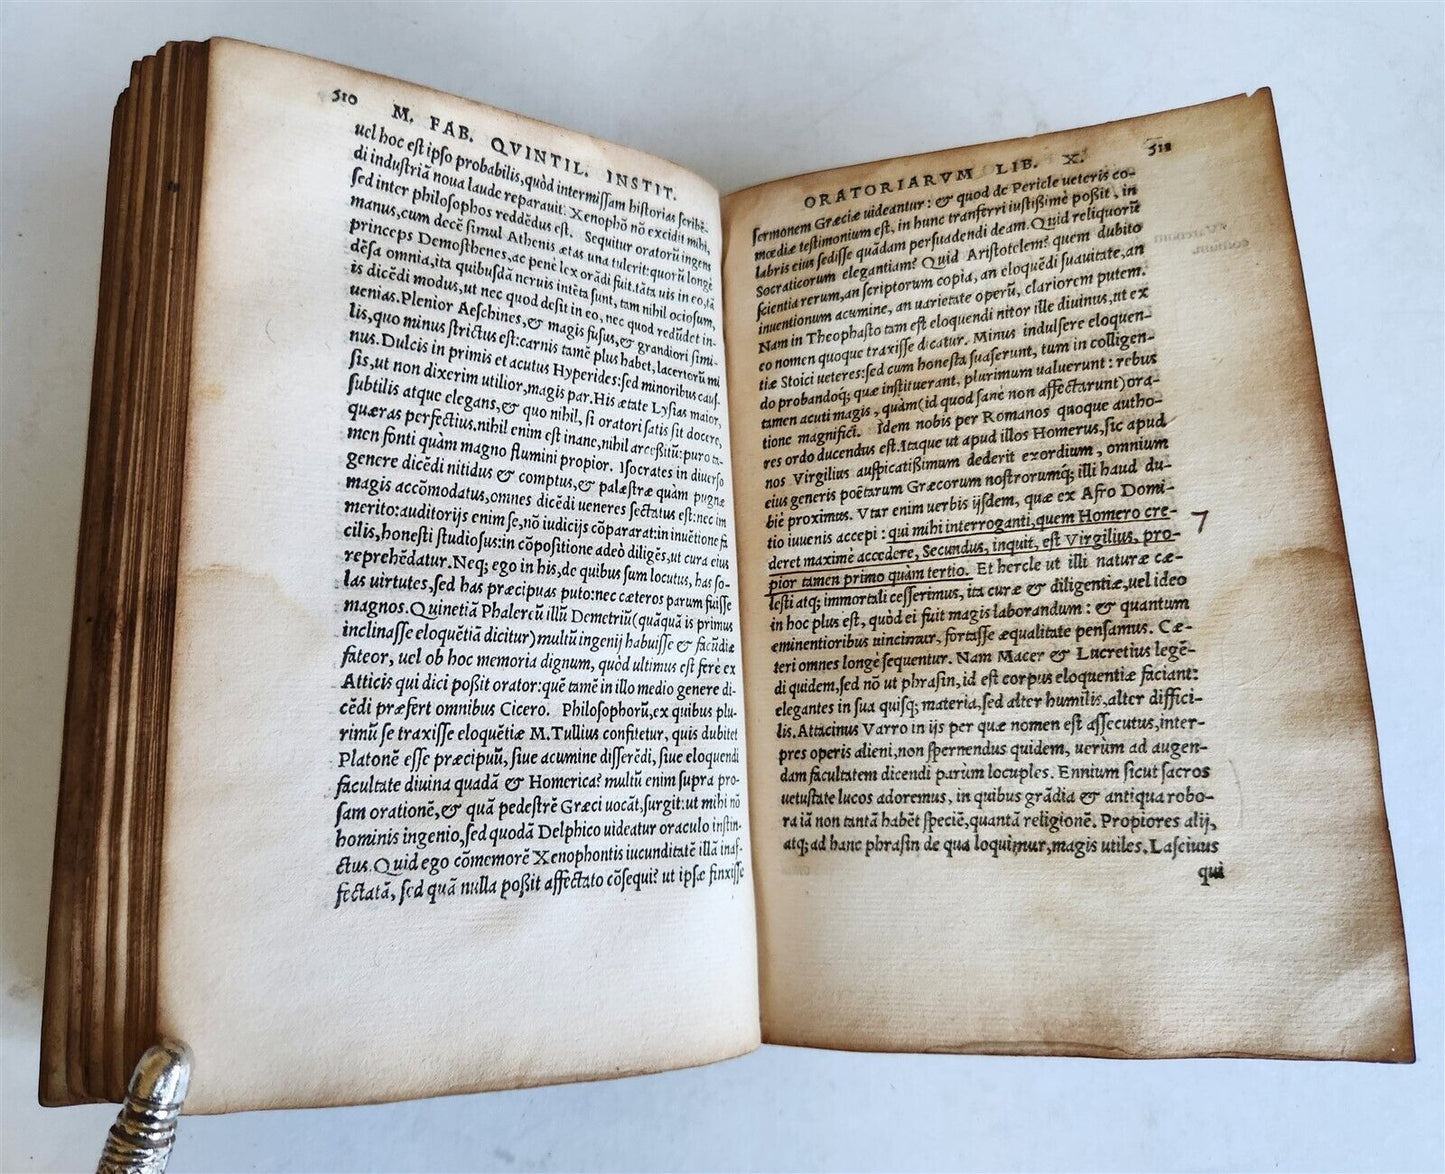 510 M. FAB. QVINTIL. INSTIT.
uel hoc est ipso probabilis,quòd intermissam historias scribē-
di industriā noua laude reparauit. Xenophō nō excidit mihi,
sed inter philosophos reddēdus est. Sequitur oratorū ingens
manus,cum decē simul Athenis ætas una tulerit:quorū longè
princeps Demosthenes,ac penè lex orādi fuit.tāta uis in eo,tā
dēsa omnia,ita quibusdā neruis intēta sunt, tam nihil ociosum,
is dicēdi modus,ut nec quod desit in eo, nec quod redūdet in-
uenias.Plenior Aeschines,& magis fusus,& grandiori simi-
lis,quo minus strictus est:carnis tamē plus habet, lacertorū mi
nus.Dulcis in primis et acutus Hyperides:sed minoribus caus-
sis,ut non dixerim utilior,magis par.His ætate Lysias maior,
subtilis atque elegans,& quo nihil, si oratori satis sit docere,
quæras perfectius.nihil enim est inane,nihil arcessitū:puro ta-
men fonti quàm magno flumini propior. Isocrates in diuerso
genere dicēdi nitidus & comptus,& palæstræ quàm pugnæ
magis accōmodatus,omnes dicēdi ueneres sectatus est:nec im
merito:auditorijs enim se,nō iudicijs cōpararat:in inuētione fa
cilis,honesti studiosus:in cōpositione adeò diligēs,ut cura eius
reprehēdatur.Neq; ego in his,de quibus sum locutus, has so-
las uirtutes,sed has præcipuas puto:nec cæteros parum fuisse
magnos.Quinetiā Phalereū illū Demetriū(quāquā is primus
inclinasse eloquētiā dicitur)multū ingenij habuisse & facūdiæ
fateor, uel ob hoc memoria dignum, quòd ultimus est ferè ex
Atticis qui dici possit orator:quē tamē in illo medio genere di-
cēdi præfert omnibus Cicero. Philosophorū,ex quibus plu-
rimū se traxisse eloquētiæ M.Tullius confitetur, quis dubitet
Platonē esse præcipuū, siue acumine disserēdi, siue eloquendi
facultate diuina quadā & Homerica? multū enim supra pro-
sam orationē,& quā pedestrē Græci uocāt,surgit:ut mihi nō
hominis ingenio,sed quodā Delphico uideatur oraculo instin-
ctus. Quid ego cōmemorē Xenophontis iucunditatē illā inaf-
fectatā, sed quā nulla possit affectatio cōsequi? ut ipsæ finxisse
ORATORIARVM LIB. X. 511
sermonem Græciæ uideantur: & quod de Pericle ueteris co-
mœdiæ testimonium est, in hunc tranferri iustissimè possit, in
labris eius sedisse quādam persuadendi deam. Quid reliquorū
Socraticorum elegantiam? Quid Aristotelem? quem dubito
scientia rerum,an scriptorum copia, an eloquēdi suauitate,an
inuentionum acumine, an uarietate operū, clariorem putem.
Nam in Theophasto tam est eloquendi nitor ille diuinus,ut ex
eo nomen quoque traxisse dicatur. Minus indulsere eloquen-
tiæ Stoici ueteres:sed cum honesta suaserunt, tum in colligen-
do probandoq; quæ instituerant, plurimum ualuerunt: rebus
tamen acuti magis, quàm(id quod sanè non affectarunt)ora-
tione magnifici. Idem nobis per Romanos quoque autho-
res ordo ducendus est.Itaque ut apud illos Homerus,sic apud
nos Virgilius auspicatissimum dederit exordium, omnium
eius generis poëtarum Græcorum nostrorumq; illi haud du-
biè proximus. Vtar enim uerbis ijsdem, quæ ex Afro Domi-
tio iuuenis accepi: qui mihi interroganti,quem Homero cre-
deret maximè accedere, Secundus, inquit, est Virgilius, pro-
pior tamen primo quàm tertio. Et hercle ut illi naturæ cæ-
lesti atq; immortali cesserimus, ita curæ & diligentiæ,uel ideo
in hoc plus est, quòd ei fuit magis laborandum: & quantum
eminentioribus uincimur, fortasse æqualitate pensamus. Cæ-
teri omnes longè sequentur. Nam Macer & Lucretius legē-
di quidem,sed nō ut phrasin, id est corpus eloquentiæ faciant:
elegantes in sua quisq; materia,sed alter humilis,alter diffici-
lis.Attacinus Varro in ijs per quæ nomen est assecutus,inter-
pres operis alieni,non spernendus quidem, uerùm ad augen-
dam facultatem dicendi parùm locuples. Ennium sicut sacros
uetustate lucos adoremus, in quibus grādia & antiqua robo-
ra iā non tantā habēt speciē,quantā religionē. Propiores alij,
atq; ad hanc phrasin de qua loquimur,magis utiles. Lasciuus
qui